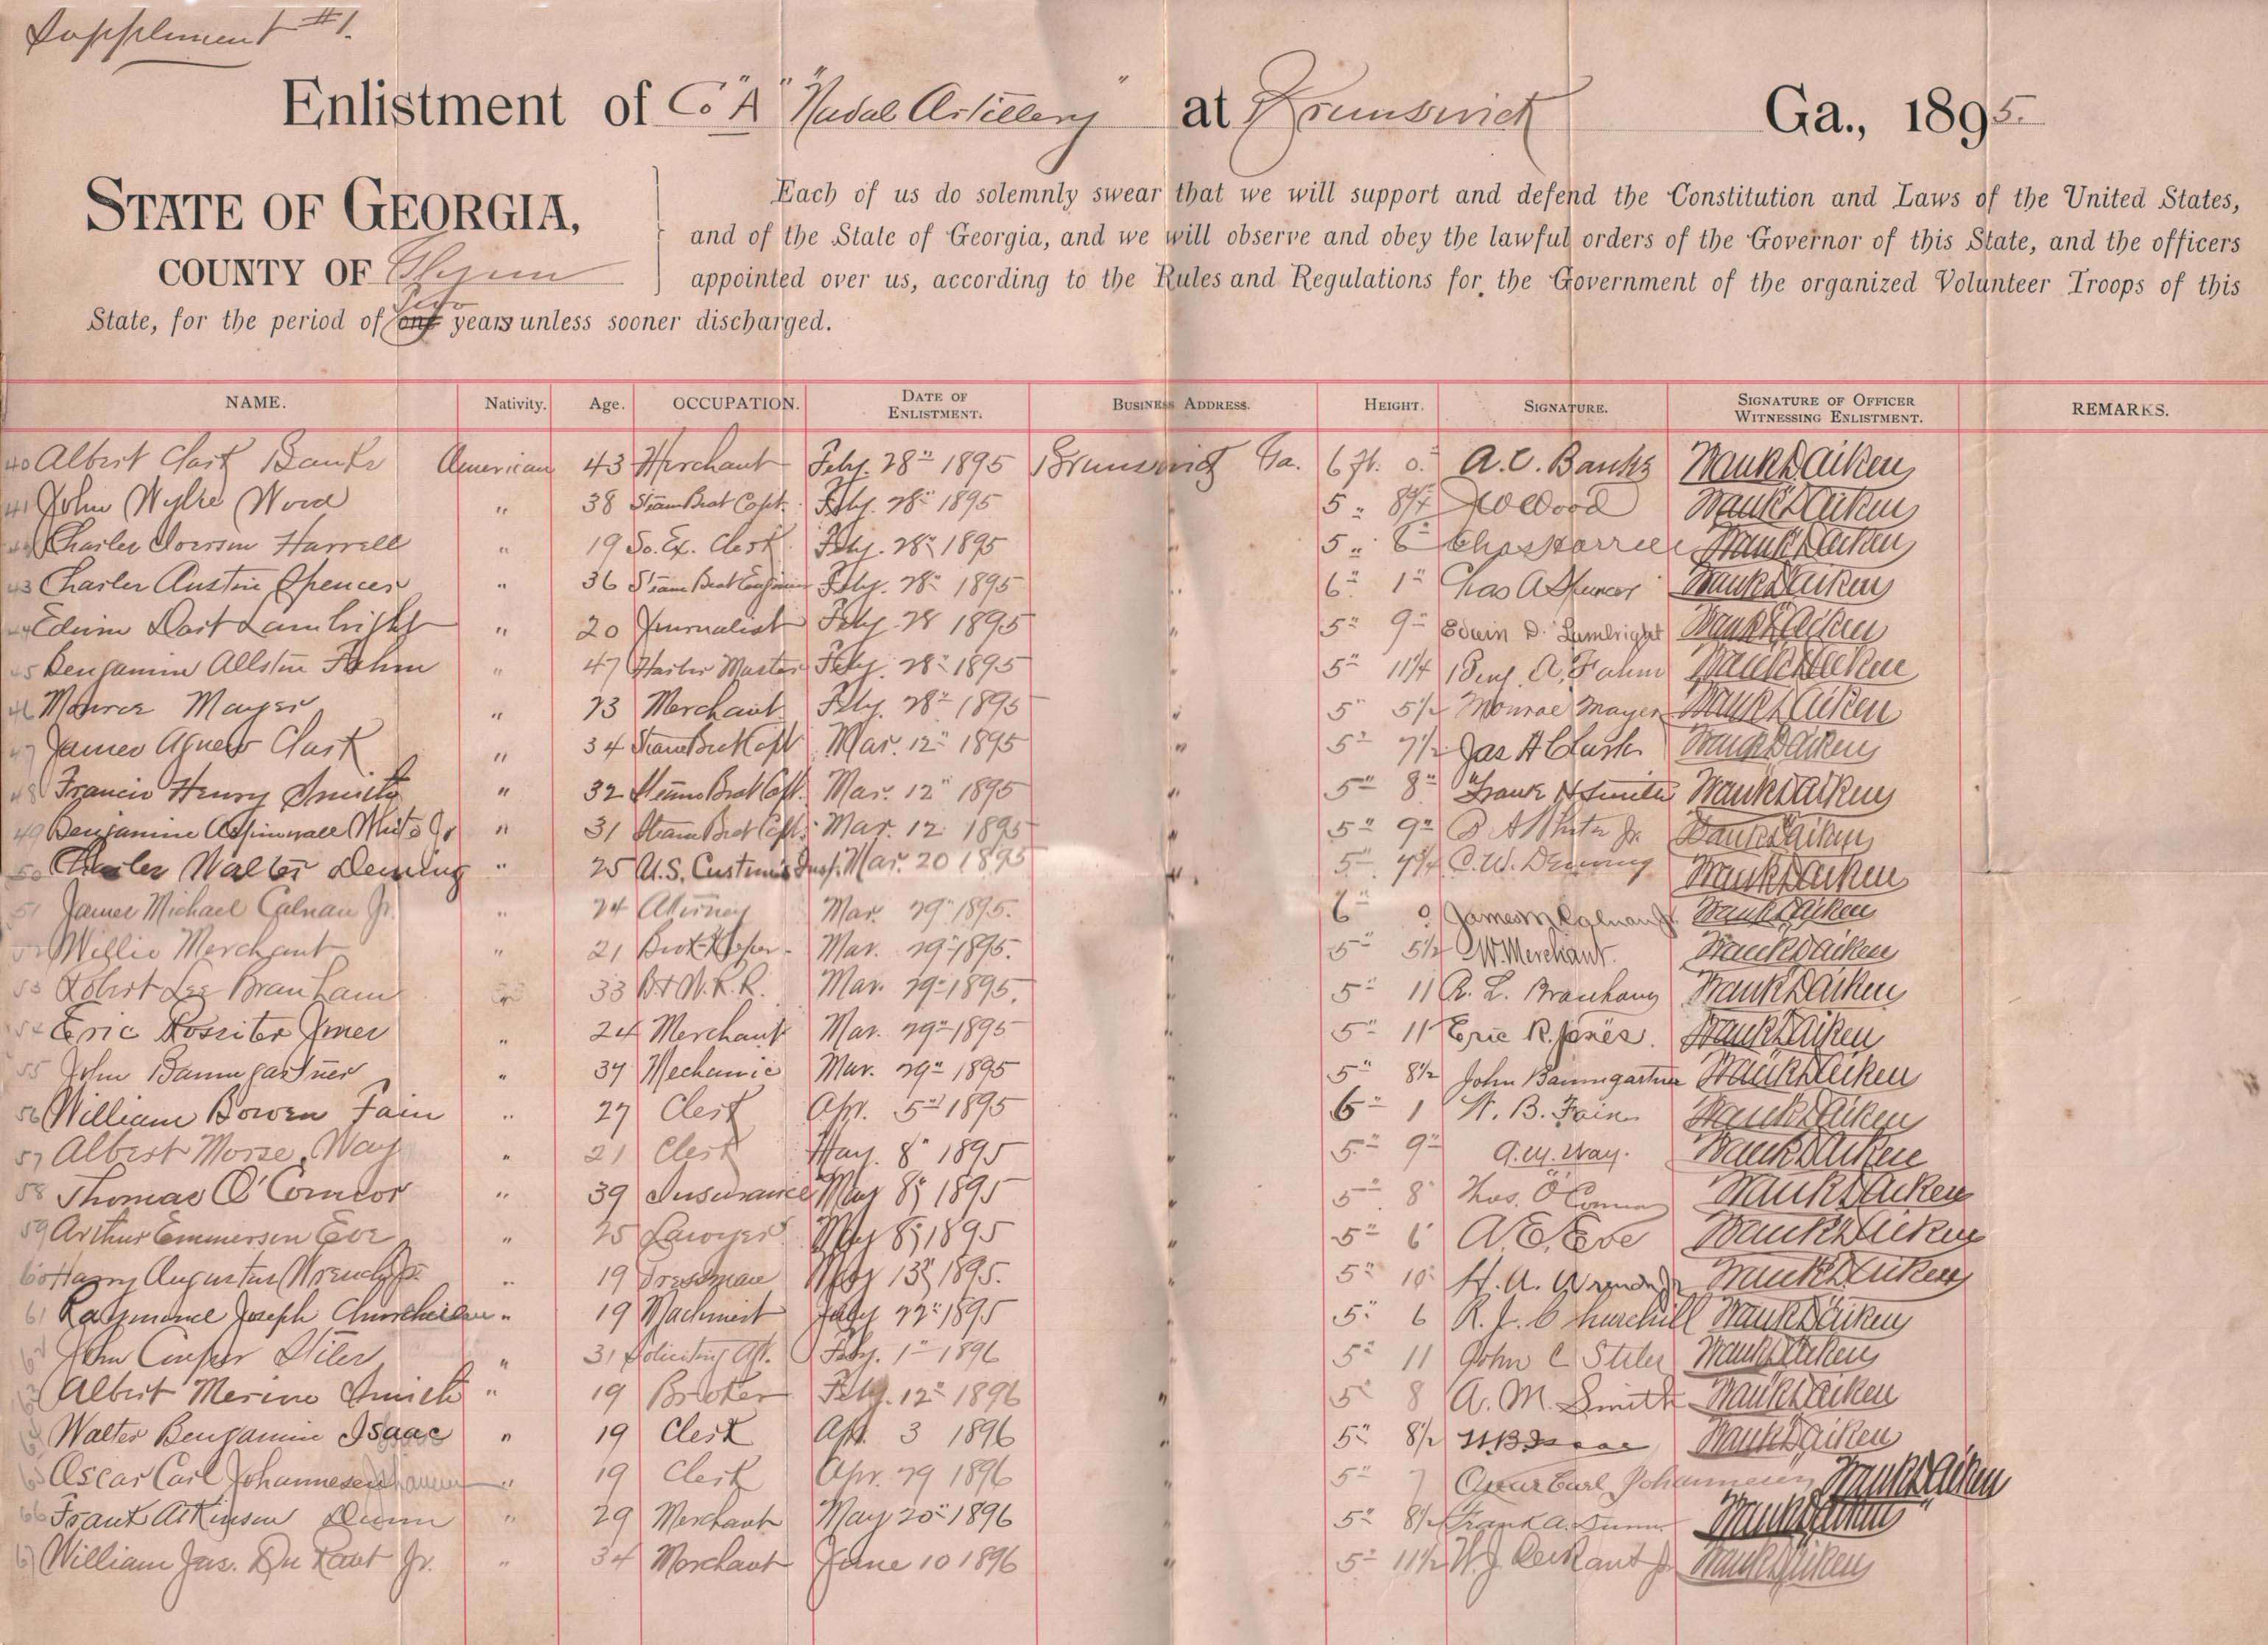 Supplement #1.
Enlistment of Co "A" "Naval Artillery" at Brunswick Ga., 1895.
STATE OF GEORGIA,
COUNTY OF Glynn
Each of us do solemnly swear that we will support and defend the Constitution and Laws of the United States,
and of the State of Georgia, and we will observe and obey the lawful orders of the Governor of this State, and the officers
appointed over us, according to the Rules and Regulations for the Government of the organized Volunteer Troops of this
two
State, for the period of one years unless sooner discharged.
NAME. Nativity. Age. OCCUPATION. DATE OF ENLISTMENT. BUSINESS ADDRESS. HEIGHT. SIGNATURE. SIGNATURE OF OFFICER WITNESSING ENLISTMENT. REMARKS.
40 Albert Clark Banks American 43 Merchant Feby. 28" 1895 Brunswick Ga. 6 ft. 0. A. C. Banks Frank D Aiken
41 John Wylie Wood " 38 Steam Boat Capt. Feby. 28" 1895 " 5 " 8 3/4 J W Wood Frank D Aiken
Charles Harrell " 19 So. Ex. Clerk. Feby. 28" 1895 " 5 " 6 Chas Harrell Frank D Aiken
43 Charles Austin Spencer " 36 Steam Boat Engineer Feby. 28" 1895 " 6" 1" Chas A Spencer Frank D Aiken
44 Edwin Dart Lambright " 20 Journalist Feby 28 1895 " 5" 9" Edwin D. Lambright Frank D Aiken
45 Benjamin Allston Fahm " 47 Harbor Master Feby. 28" 1895 " 5" 11 1/4 Benj. A. Fahm Frank D Aiken
46 Monroe Mayer " 23 Merchant Feby. 28" 1895 " 5" 5 1/2 Monroe Mayer Frank D Aiken
47 James Agnew Clark " 34 Steam Boat Capt Mar. 12" 1895 " 5" 7 1/2 Jas A Clark Frank D Aiken
48 Francis Henry Smith " 32 Steam Boat Capt. Mar. 12" 1895 " 5" 8" Frank H Smith Frank D Aiken
49 Benjamine Aspinwall White Jr " 31 Steam Boat Capt. Mar. 12. 1895 " 5" 9" B A White Jr. Frank D Aiken
50 Charles Walter Deming " 25 U.S. Customs Insp. Mar. 20 1895 " 5" 7 3/4 C. W. Deming Frank D Aiken
51 James Michael Calnan Jr. " 24 Attorney Mar. 29" 1895. " 6" 0 James M Calnan Jr. Frank D Aiken
52 Willie Merchant " 21 Book Keeper Mar. 29" 1895. " 5" 5 1/2 W. Merchant. Frank D Aiken
53 Robert Lee Branham " 33 B & W. R.R. Mar. 29" 1895. " 5" 11 R. L. Branham Frank D Aiken
54 Eric Rossiter Jones " 24 Merchant Mar. 29" 1895 " 5" 11 Eric R. Jones. Frank D Aiken
55 John Baumgartner " 34 Mechanic Mar. 29" 1895 " 5" 8 1/2 John Baumgartner Frank D Aiken
56 William Bowen Fain " 27 Clerk Apr. 5" 1895 " 6" 1 W. B. Fain. Frank D Aiken
57 Albert Morse Way " 21 Clerk May. 8" 1895 " 5" 9" A. M. Way. Frank D Aiken
58 Thomas O'Connor " 39 Insurance May 8" 1895 " 5" 8" Thos. O'Connor Frank D Aiken
59 Arthur Emmerson Eve " 25 Lawyer May 8" 1895 " 5" 6" A. E. Eve Frank D Aiken
60 Harry Augustus Wrench Jr. " 19 Pressman May 13" 1895. " 5" 10" H. A. Wrench Jr Frank D Aiken
61 Raymond Joseph Churchill " 19 Machinist July 22" 1895 " 5" 6 R. J. Churchill Frank D Aiken
62 John Couper Stiles " 31 Soliciting Agt. Feby. 1" 1896 5" 11 John C Stiles Frank D Aiken
63 Albert Merino Smith " 19 Broker Feby. 12" 1896 " 5" 8 A. M. Smith Frank D Aiken
64 Walter Benjamin Isaac " 19 Clerk Apr. 3 1896 " 5" 8 1/2 W B Isaac Frank D Aiken
65 Oscar Carl Johannesen " 19 Clerk Apr. 29 1896 " 5" 7 Oscar Carl Johannesen Frank D Aiken
66 Frank Atkinson Dunn " 29 Merchant May 20" 1896 " 5" 8 1/2 Frank A. Dunn Frank D Aiken
67 William Jas. DuRant Jr. " 34 Merchant June 10 1896 " 5" 11 1/2 W. J. DuRant Jr Frank D Aiken